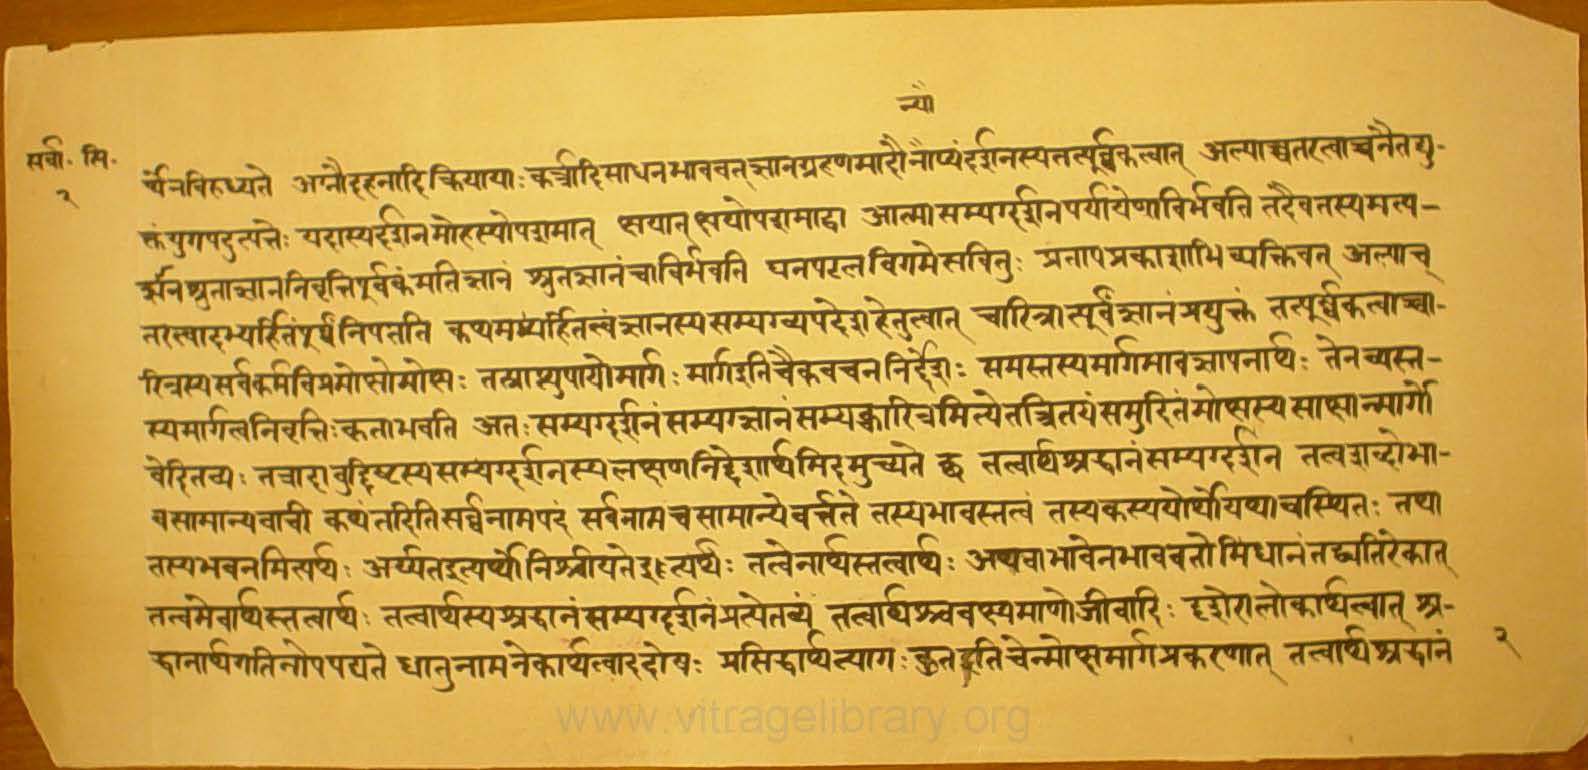 न्यौ
सर्वा. सि.
२
र्थेनविरुध्यते अग्नौदहनादिक्रियायाः कर्त्रादिसाधनभाववत् ज्ञानग्रहणमादौ नाप्यंदर्शनस्यतत्पूर्व्वकत्वात् अल्पाच्चतरत्वाच्चनैतद्यु-
क्तंयुगपदुत्पत्तेः यदास्यदर्शनमोहस्योपशमात् क्षयात् क्षयोपशमाद्वा आत्मासम्यग्दर्शनपर्यायेणाविर्भवति तदैवतस्यमत्य-
ज्ञानश्रुताज्ञाननिवृत्तिपूर्वकंमतिज्ञानं श्रुतज्ञानंचाविर्भवति घनपटलविगमेसवितुः प्रतापप्रकाशाभिव्यक्तिवत् अल्पाच्
तरत्वादभ्यर्हितंपूर्व्वंनिपतति कथमभ्यर्हितत्वंज्ञानस्यसम्यग्व्यपदेशहेतुत्वात् चारित्रात्पूर्वंज्ञानंप्रयुक्तं तत्पूर्व्वकत्वाच्चा-
रित्रस्यसर्वकर्मविप्रमोक्षोमोक्षः तत्प्राप्त्युपायोमार्गः मार्गइतिचैकवचननिर्देशः समस्तस्यमार्गभावज्ञापनार्थः तेनव्यस्त-
स्यमार्गत्वनिवृत्तिःकृताभवति अतः सम्यग्दर्शनंसम्यग्ज्ञानंसम्यक्चारित्रमित्येतत्त्रितयंसमुदितंमोक्षस्यसाक्षान्मार्गो
वेदितव्यः तत्रादावुद्दिष्टस्यसम्यग्दर्शनस्यलक्षणनिर्द्देशार्थमिदमुच्यते छ तत्वार्थश्रद्धानंसम्यग्दर्शन तत्वशब्दोभा-
वसामान्यवाची कथंतदितिसर्व्वनामपदं सर्वनामचसामान्येवर्त्तते तस्यभावस्तत्वं तस्यकस्ययोर्थोयथावस्थितः तथा
तस्यभवनमित्यर्थः अर्य्यतइत्यर्थ्थोनिश्चीयतेइत्यर्थः तत्वेनार्थस्तत्वार्थः अथवाभावेनभाववतोभिधानंतद्व्यतिरेकात्
तत्वमेवार्थस्तत्वार्थः तत्वार्थस्यश्रद्धानंसम्यग्दर्शनंप्रत्येतव्यं तत्वार्थश्चवक्ष्यमाणोजीवादिः दृशेरालोकार्थत्वात् श्र-
द्धानार्थगतिनोपपद्यते धातुनामनेकार्थत्वाददोषः प्रसिद्धार्थत्यागः कुतइतिचेन्मोक्षमार्गप्रकरणात् तत्वार्थश्रद्धानं
२
www.vitragelibrary.org